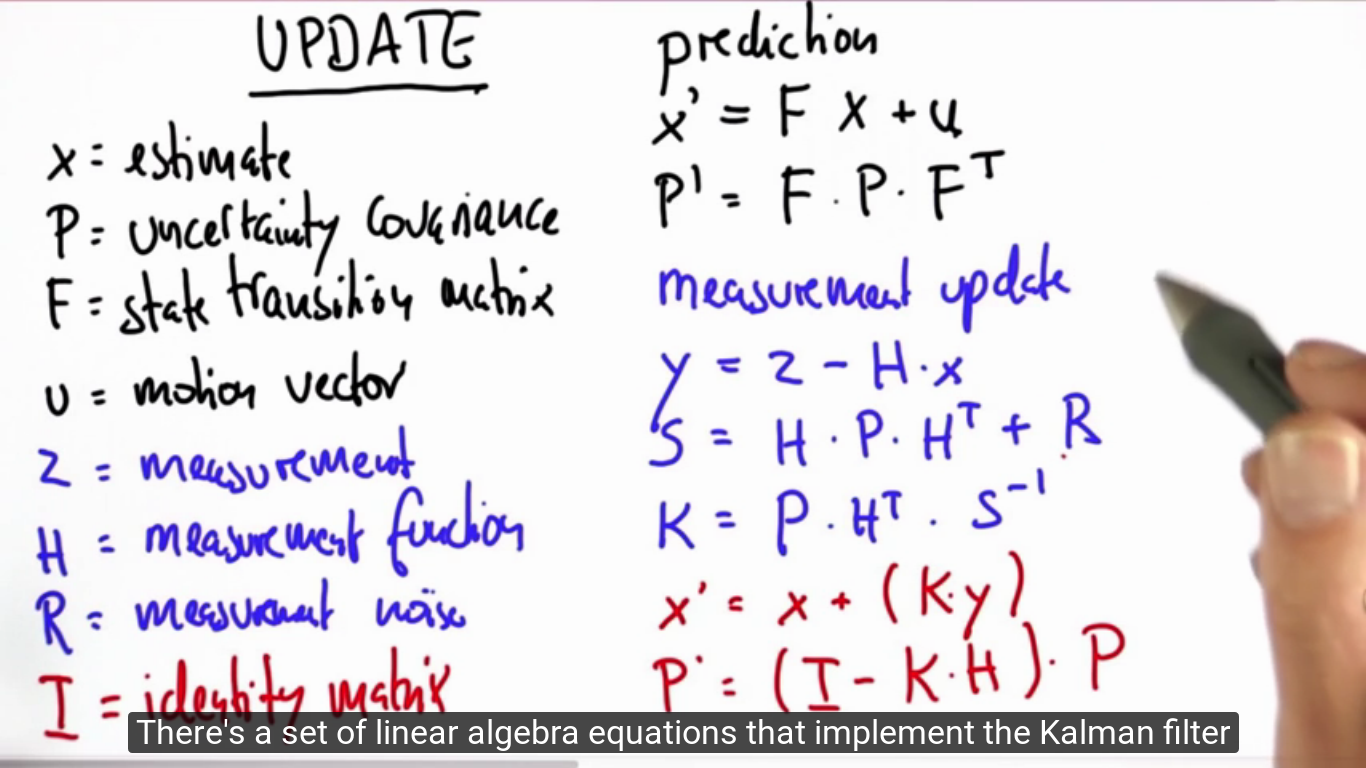 UPDATE
x = estimate
P = uncertainty covariance
F = state transition matrix
u = motion vector
z = measurement
H = measurement function
R = measurement noise
I = identity matrix
prediction
x' = F x + u
P' = F · P · Fᵀ
measurement update
y = z - H · x
S = H · P · Hᵀ + R
K = P · Hᵀ · S⁻¹
x' = x + (K · y)
P' = (I - K · H) · P
There's a set of linear algebra equations that implement the Kalman filter